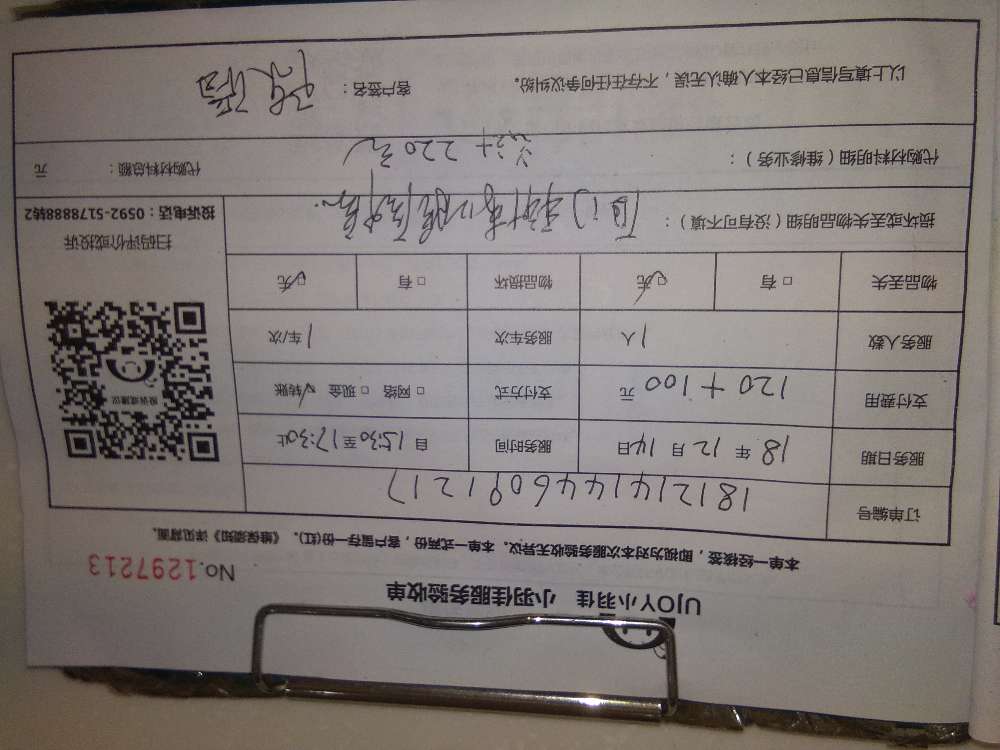 UJOY小羽佳 小羽佳服务验收单
No.1297213
本单一经核签，即视为对本次服务验收无异议。本单一式两份，客户留存一份(红)。《维保须知》详见背面。
订单编号 1812141446091217
服务日期 18 年 12 月 14 日 服务时间 自 15:30 至 17:30 止
支付费用 120+100 元 支付方式 □ 网络 □ 现金 ☑ 转账
服务人数 1 人 服务车次 1 车/次
物品丢失 □ 有 ☑ 无 物品损坏 □ 有 ☑ 无
投诉或建议
扫码评价或投诉
投诉电话：0592-5178888转2
损坏或丢失物品明细（没有可不填）：
代购材料明细（维修业务）： 220元 代购材料总额： 元
以上填写信息已经本人确认无误，不存在任何争议纠纷。 客户签名：